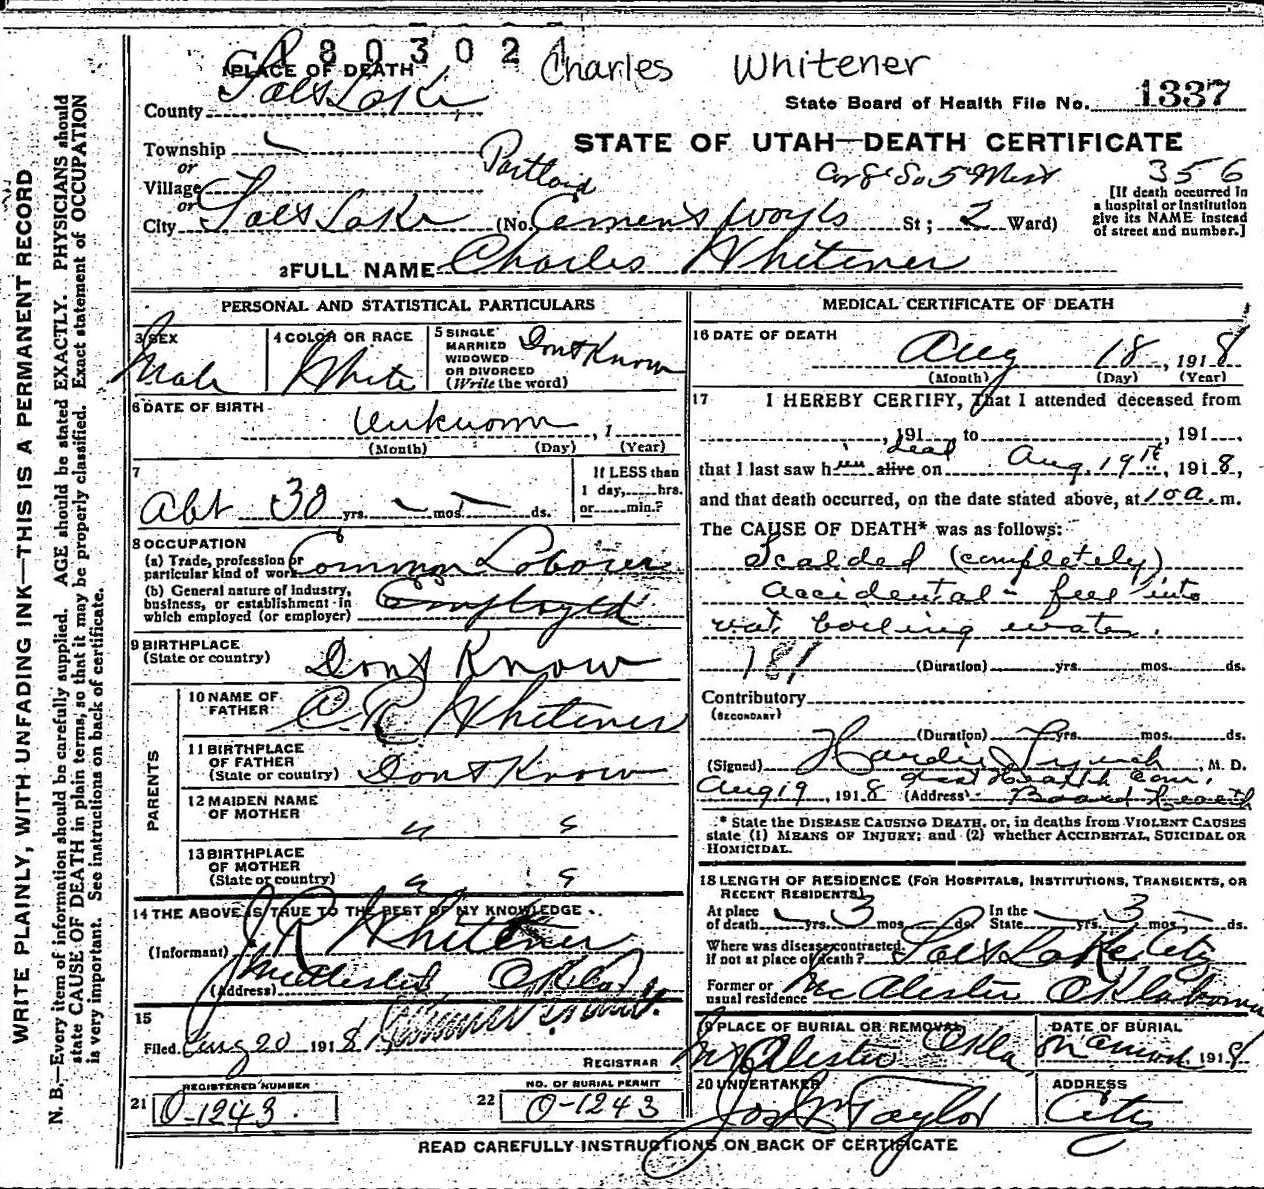 1803021
Charles Whitener
1 PLACE OF DEATH
State Board of Health File No. 1337
County Salt Lake
STATE OF UTAH—DEATH CERTIFICATE
Township
or
Village
or
Portland
Cor 8 So 5 West 356
[If death occurred in a hospital or institution give its NAME instead of street and number.]
City Salt Lake (No. Cement works St; 2 Ward)
2 FULL NAME Charles Whitener
PERSONAL AND STATISTICAL PARTICULARS
3 SEX Male
4 COLOR OR RACE White
5 SINGLE MARRIED WIDOWED OR DIVORCED (Write the word) Dont Know
6 DATE OF BIRTH Unknown, 1
(Month) (Day) (Year)
7 Abt 30 yrs. mos. ds.
If LESS than 1 day, hrs. or min.?
8 OCCUPATION
(a) Trade, profession or particular kind of work Common Laborer
(b) General nature of industry, business, or establishment in which employed (or employer) Employed
9 BIRTHPLACE (State or country) Dont Know
PARENTS
10 NAME OF FATHER C. R. Whitener
11 BIRTHPLACE OF FATHER (State or country) Dont Know
12 MAIDEN NAME OF MOTHER " "
13 BIRTHPLACE OF MOTHER (State or country) " "
14 THE ABOVE IS TRUE TO THE BEST OF MY KNOWLEDGE
(Informant) J R Whitener
(Address) McAlester, Okla
15
Filed Aug 20 1918
REGISTRAR
21 REGISTERED NUMBER 0-1243.
22 NO. OF BURIAL PERMIT 0-1243
MEDICAL CERTIFICATE OF DEATH
16 DATE OF DEATH
Aug 18, 1918
(Month) (Day) (Year)
17 I HEREBY CERTIFY, That I attended deceased from
, 191 to , 191 ,
that I last saw him alive dead on Aug. 19th, 1918,
and that death occurred, on the date stated above, at 10 a. m.
The CAUSE OF DEATH* was as follows:
Scalded (completely)
Accidental - feel into
vat, boiling water.
181 (Duration) yrs. mos. ds.
Contributory
(SECONDARY)
(Duration) yrs. mos. ds.
(Signed) M. D.
Aug 19, 1918 (Address) Board Health
* State the DISEASE CAUSING DEATH, or, in deaths from VIOLENT CAUSES
state (1) MEANS OF INJURY; and (2) whether ACCIDENTAL, SUICIDAL OR
HOMICIDAL.
18 LENGTH OF RESIDENCE (FOR HOSPITALS, INSTITUTIONS, TRANSIENTS, OR
RECENT RESIDENTS)
At place of death yrs. 3 mos. ds. In the State yrs. 3 mos. ds.
Where was disease contracted, if not at place of death? Salt Lake City
Former or usual residence McAlester Oklahoma
19 PLACE OF BURIAL OR REMOVAL McAlester Okla
DATE OF BURIAL 1918
20 UNDERTAKER Jos Wm Taylor
ADDRESS City
READ CAREFULLY INSTRUCTIONS ON BACK OF CERTIFICATE
WRITE PLAINLY, WITH UNFADING INK—THIS IS A PERMANENT RECORD
N. B.—Every item of information should be carefully supplied. AGE should be stated EXACTLY. PHYSICIANS should
state CAUSE OF DEATH in plain terms, so that it may be properly classified. Exact statement of OCCUPATION
is very important. See instructions on back of certificate.